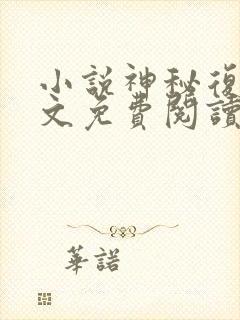 小説神秘復
文免費閱讀
華諾